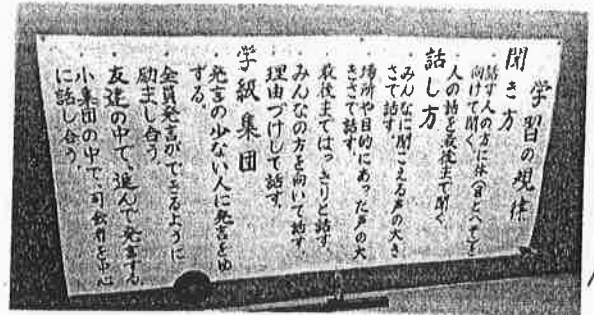 学習の規律
聞き方
・話す人の方に体(目とへそ)を
向けて聞く
・人の話を最後まで聞く
話し方
・みんなに聞こえる声の大き
さで話す。
・場所や目的にあった声の大
きさで話す。
・最後まではっきりと話す。
・みんなの方を向いて話す。
・理由づけして話す。
学級集団
・発言の少ない人に発言をゆ
ずる。
・全員発言ができるように
励まし合う。
・友達の中で、進んで発言する。
・小集団の中で、司会者を中心
に話し合う。